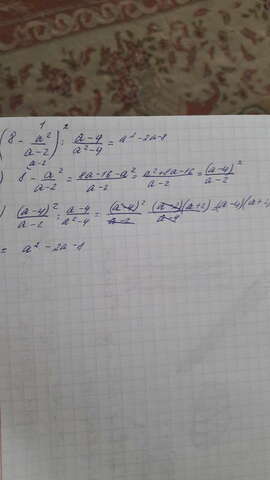 (8 - a²/(a-2))² : (a-4)/(a²-4) = a² - 2a - 8
) 8 - a²/(a-2) = (8a-16-a²)/(a-2) = (a²+8a-16)/(a-2) = (a-4)²/(a-2)
) (a-4)²/(a-2) : (a-4)/(a²-4) = (a-4)²/(a-2) · (a-2)(a+2)/(a-4) = (a-4)(a+2)
= a² - 2a - 8